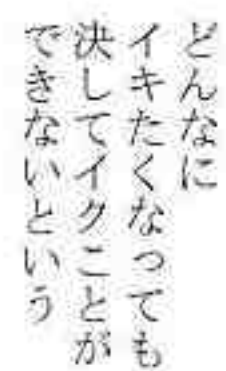 どんなに
イキたくなっても
決してイクことが
できないという